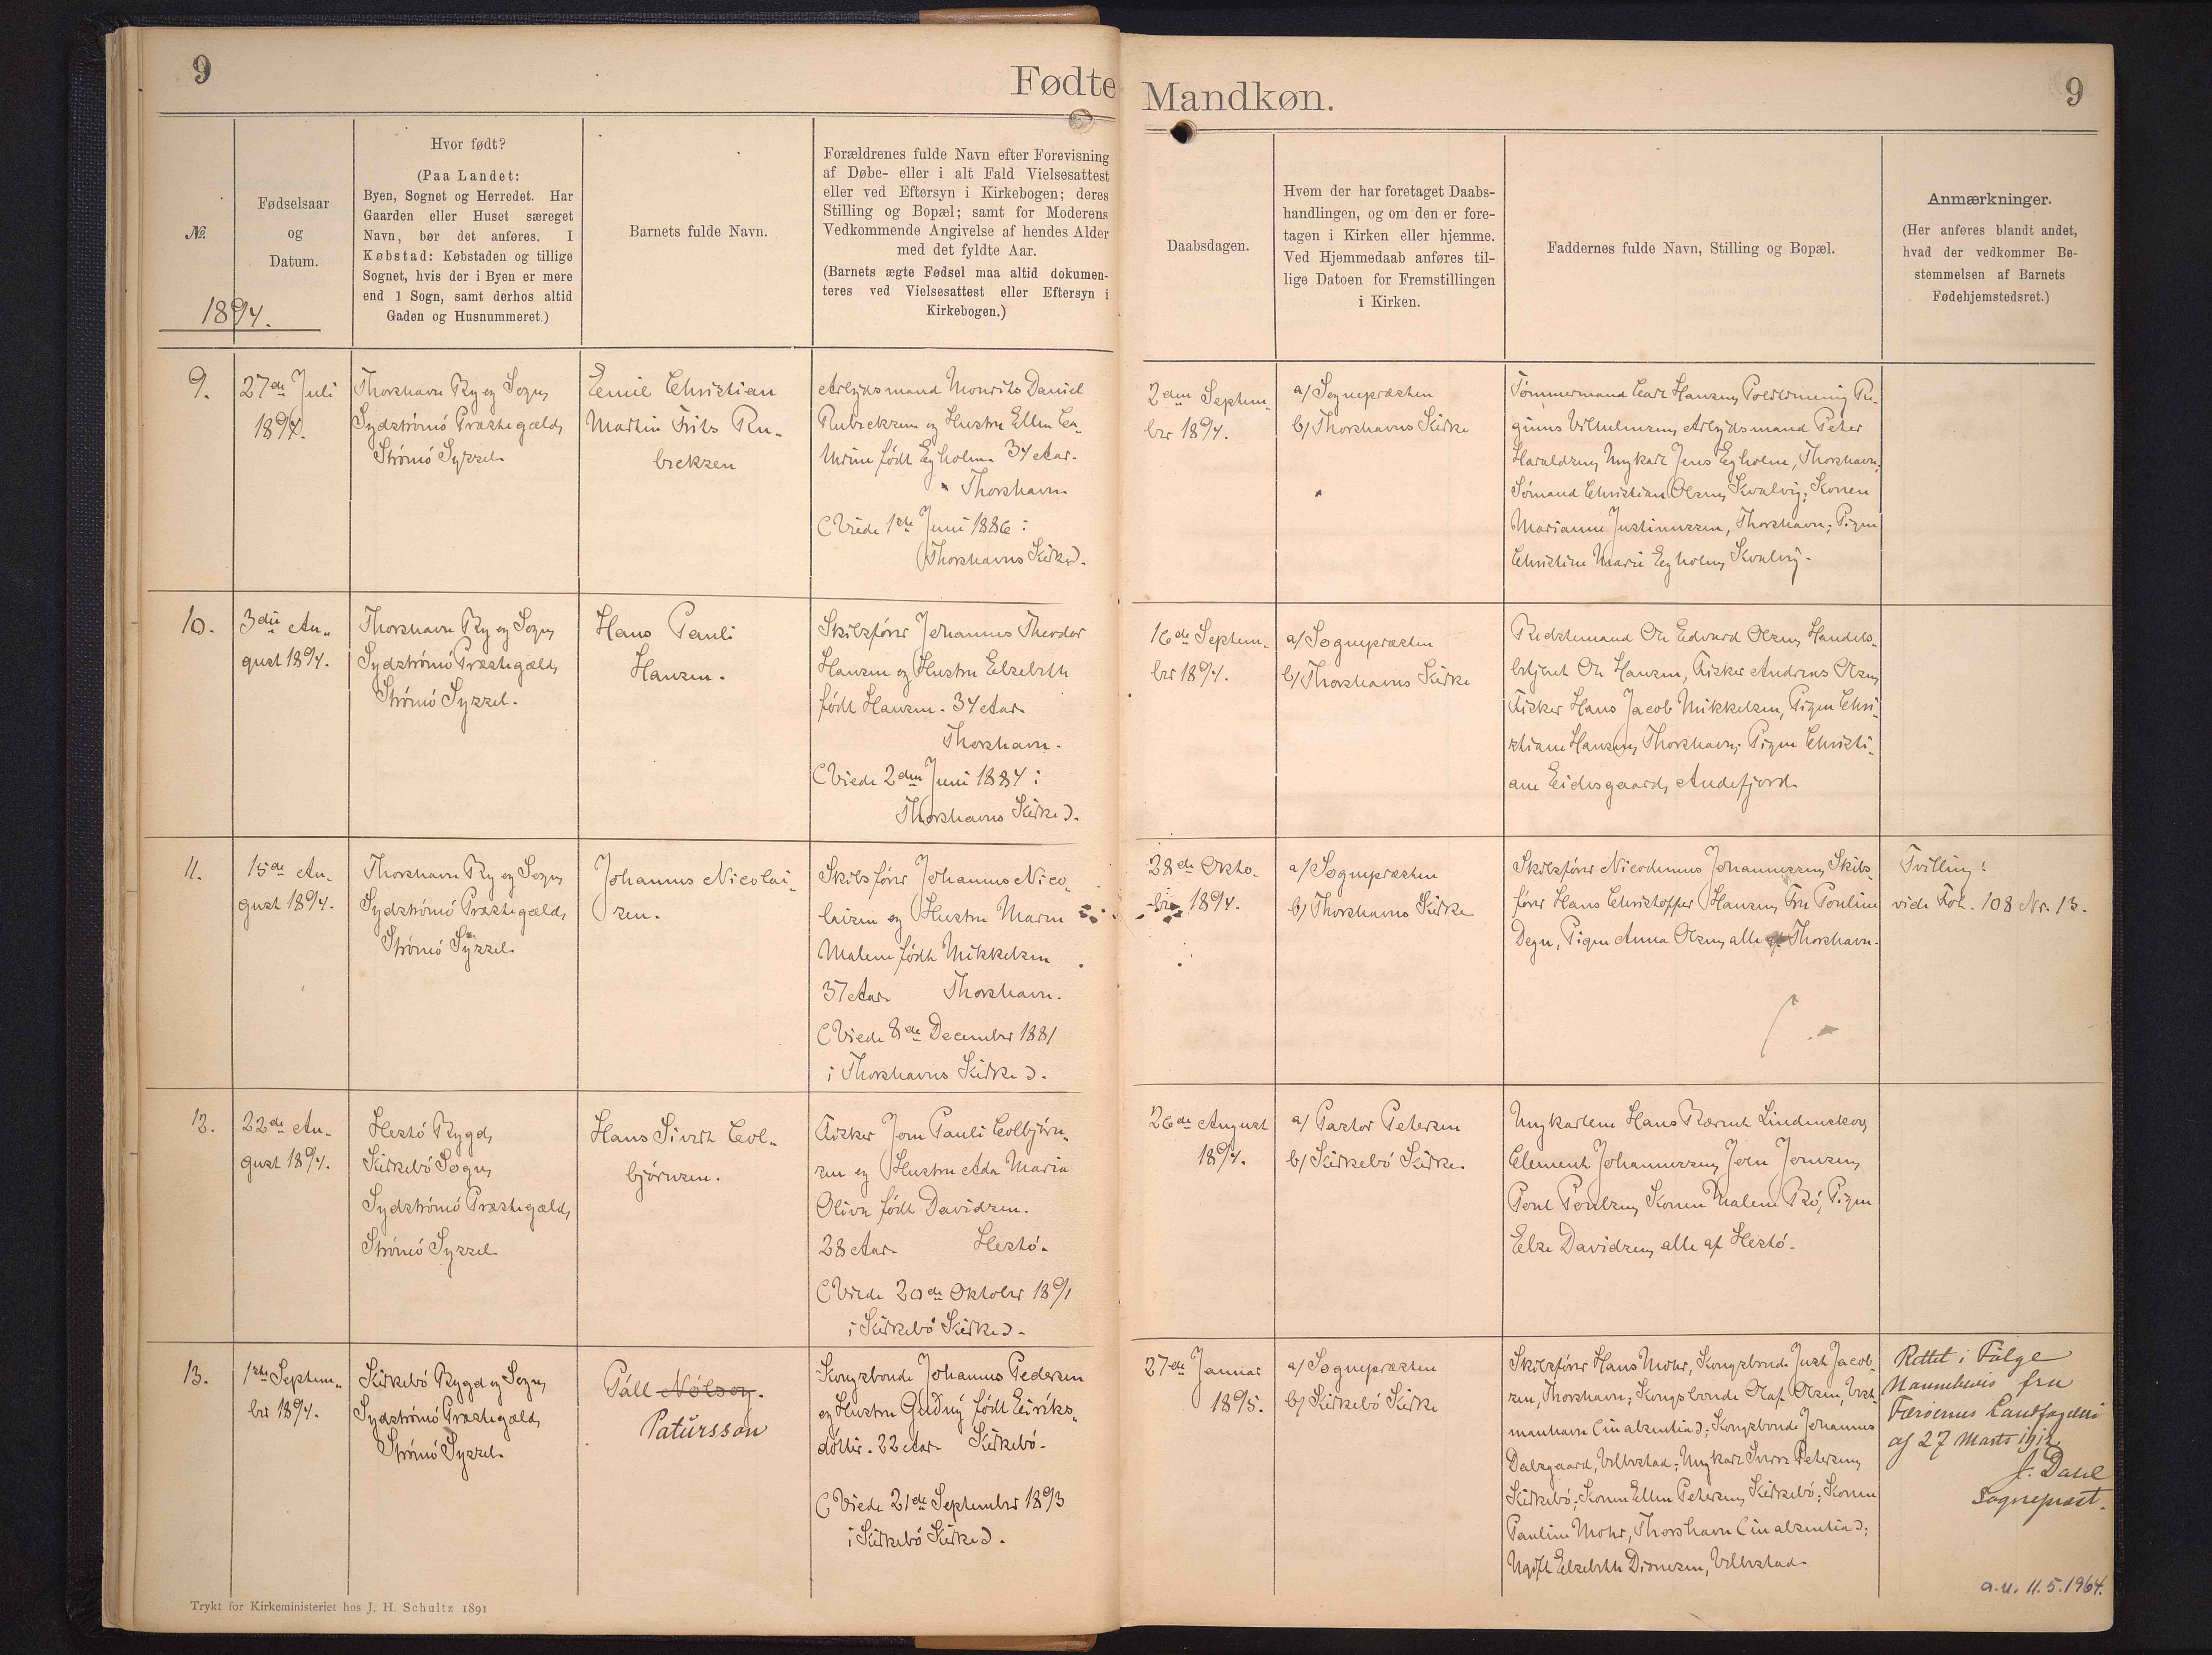 9
Fødte
Mandkøn.
9
№.
Fødselsaar
og
Datum.
1894.
Hvor født?
(Paa Landet:
Byen, Sognet og Herredet. Har
Gaarden eller Huset særeget
Navn, bør det anføres. I
Købstad: Købstaden og tillige
Sognet, hvis der i Byen er mere
end 1 Sogn, samt derhos altid
Gaden og Husnummeret.)
Barnets fulde Navn.
Forældrenes fulde Navn efter Forevisning
af Døbe- eller i alt Fald Vielsesattest
eller ved Eftersyn i Kirkebogen; deres
Stilling og Bopæl; samt for Moderens
Vedkommende Angivelse af hendes Alder
med det fyldte Aar.
(Barnets ægte Fødsel maa altid dokumen-
teres ved Vielsesattest eller Eftersyn i
Kirkebogen.)
Daabsdagen.
Hvem der har foretaget Daabs-
handlingen, og om den er fore-
tagen i Kirken eller hjemme.
Ved Hjemmedaab anføres til-
lige Datoen for Fremstillingen
i Kirken.
Faddernes fulde Navn, Stilling og Bopæl.
Anmærkninger.
(Her anføres blandt andet,
hvad der vedkommer Be-
stemmelsen af Barnets
Fødehjemstedsret.)
9.
27de Juli
1894.
Thorshavn By og Sogn,
Sydstrømø Præstegæld,
Strømø Syssel.
Emil Christian
Martin Frits Ru-
beksen
Arbejdsmand Mourits Daniel
Rubeksen og Hustru Ellen Ca-
thrine født Egholm. 34 Aar.
Thorshavn
(Viede 1ste Juni 1886 i
Thorshavns Kirke).
2den Septem-
ber 1894.
a/ Sognepræsten
b/ Thorshavns Kirke
Tømmermand Carl Hansen, Politibetjent Re-
ginus Vilhelmsen, Arbejdsmand Peter
Haraldsen, Ungkarl Jens Egholm, Thorshavn;
Sømand Christian Olsen, Kvalvig; Konen
Marianne Justinussen, Thorshavn; Pigen
Christine Marie Egholm, Kvalvig.
10.
3die Au-
gust 1894.
Thorshavn By og Sogn,
Sydstrømø Præstegæld,
Strømø Syssel.
Hans Pauli
Hansen.
Skibsfører Johannes Theodor
Hansen og Hustru Elsebeth
født Hansen. 34 Aar.
Thorshavn.
(Viede 2den Juni 1884 i
Thorshavns Kirke).
16de Septem-
ber 1894.
a/ Sognepræsten
b/ Thorshavns Kirke
Ole Edvard Olsen, Handels-
betjent Ole Hansen, Fisker Andreas Olsen,
Fisker Hans Jacob Mikkelsen, Pigen Chri-
stiane Hansen, Thorshavn; Pigen Christi-
ane Eidesgaard, Andefjord.
11.
15de Au-
gust 1894.
Thorshavn By og Sogn,
Sydstrømø Præstegæld,
Strømø Syssel.
Johannes Nicolai-
sen.
Skibsfører Johannes Nico-
laisen og Hustru Maren
Malene født Mikkelsen
37 Aar. Thorshavn.
(Viede 8de December 1881
i Thorshavns Kirke).
28de Okto-
ber 1894.
a/ Sognepræsten
b/ Thorshavns Kirke
Skibsfører Nicodemus Johannessen, Skibs-
fører Hans Christoffer Hansen, Fru Pouline
Degn, Pigen Anna Olsen, alle af Thorshavn.
Tvilling!
vide Fol. 108 Nr. 13.
12.
22de Au-
gust 1894.
Hestø Bygd,
Kirkebø Sogn,
Sydstrømø Præstegæld,
Strømø Syssel
Hans Sivert Col-
bjørnsen.
Fisker Joen Pauli Colbjørn-
sen og Hustru Ada Maria
Oliva født Davidsen.
28 Aar. Hestø.
(Viede 20de Oktober 1891
i Kirkebø Kirke).
26de August
1894.
a/ Pastor Petersen
b/ Kirkebø Kirke.
Ungkarlene Hans Berent Lindenskov,
Clement Johannessen, Joen Joensen,
Poul Poulsen, Konen Malene Bø, Pigen
Else Davidsen, alle af Hestø.
13.
1ste Septem-
ber 1894.
Kirkebø Bygd og Sogn,
Sydstrømø Præstegæld,
Strømø Syssel.
Páll Nólsoy.
Patursson
Kongsbonde Johannes Pedersen
og Hustru Guðný født Eiríks-
dóttir. 22 Aar. Kirkebø.
(Viede 21de September 1893
i Kirkebø Kirke).
27de Januar
1895.
a/ Sognepræsten
b/ Kirkebø Kirke
Skibsfører Hans Mohr, Kongsbonde Just Jacob-
sen, Thorshavn; Kongsbonde Olaf Olsen, Vest-
manhavn (in absentia); Kongsbonde Johannes
Dalsgaard, Velbestad; Ungkarl Sverre Petersen,
Kirkebø; Konen Ellen Petersen, Kirkebø; Konen
Pauline Mohr, Thorshavn (in absentia);
Ugift Elsebeth Dionesen, Velbestad.
Rettet i Følge
Navnebevis fra
Færøernes Landfogderi
af 27 Marts 1912.
J. Dahl
Sognepræst.
a.u. 11.5.1964.
Trykt for Kirkeministeriet hos J. H. Schultz 1891